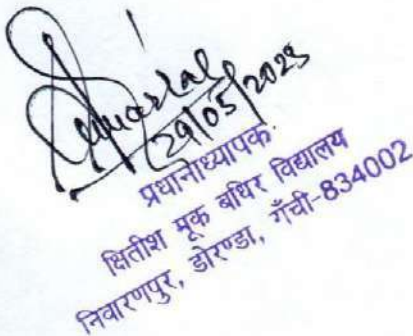 29/05/2023
प्रधानाध्यापक
क्षितीश मूक बधिर विद्यालय
निवारणपुर, डोरण्डा, राँची-834002